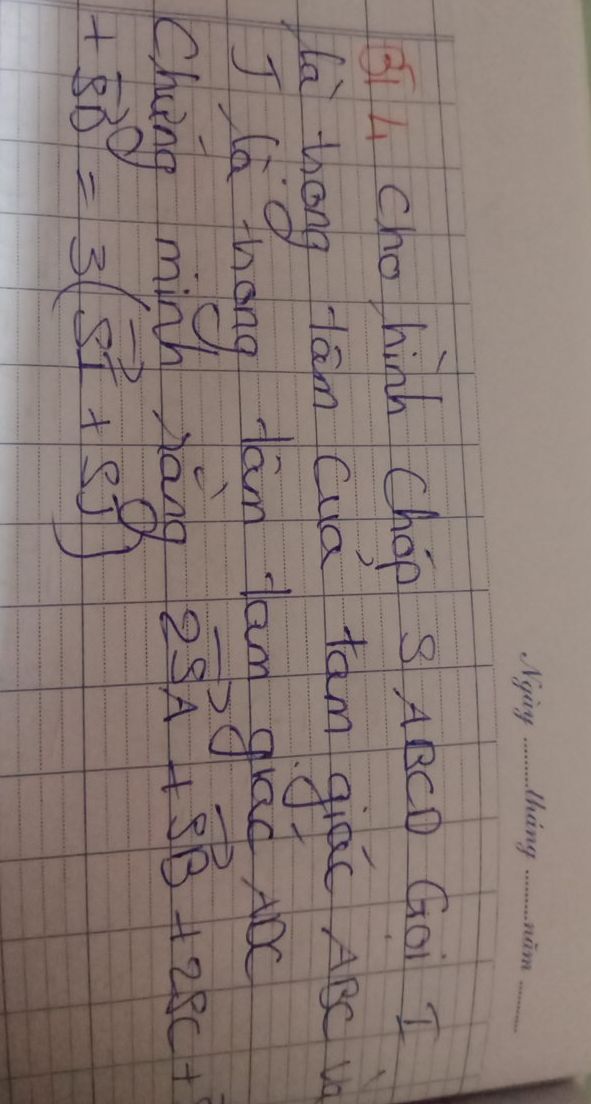 Ngày ......... tháng ......... năm .........
Bài 4 Cho hình chóp S ABCD Gọi I
là trọng tâm của tam giác ABC và
J là trọng tâm tam giác ADC
Chứng minh rằng 2SA + SB + 2SC +
+ SD = 3(SI + SJ)